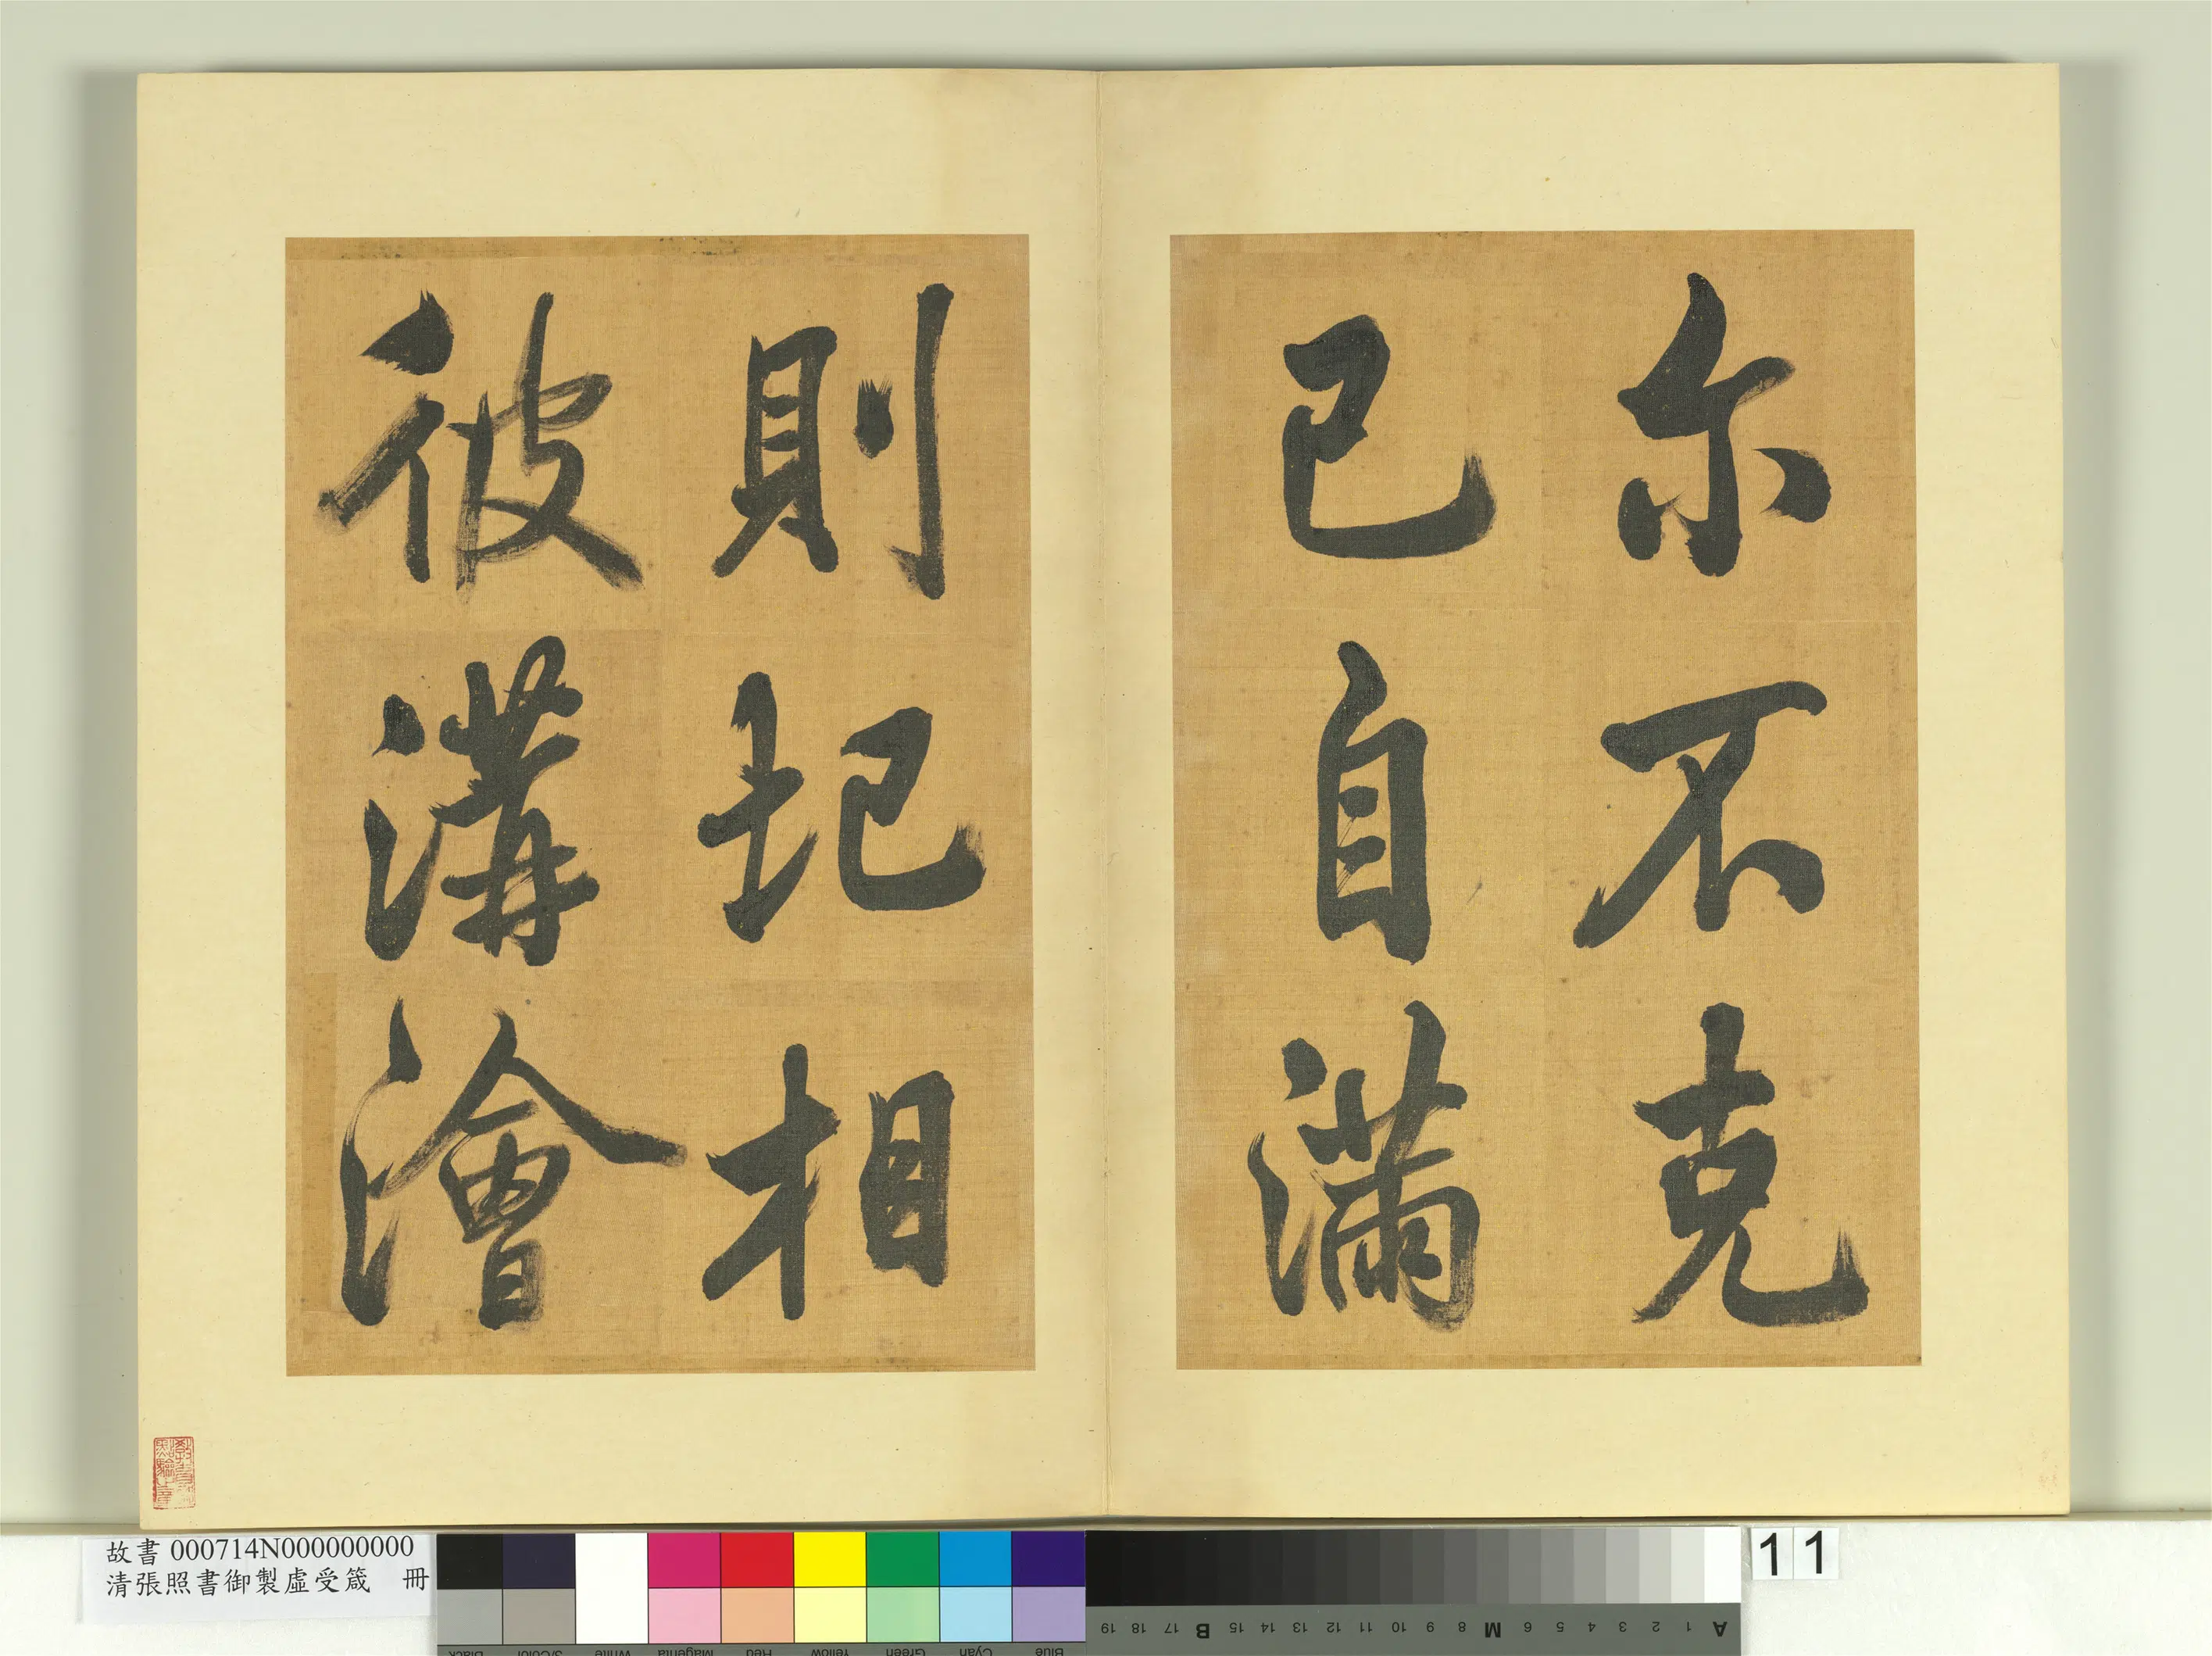 尔不克
已自滿
則圯相
彼溝澮
故書 000714N000000000
清張照書御製虛受箴 冊
11
Black 3/Color White Magenta Red Yellow Green Cyan Blue
A 1 2 3 4 5 6 M 8 9 10 11 12 13 14 15 B 17 18 19